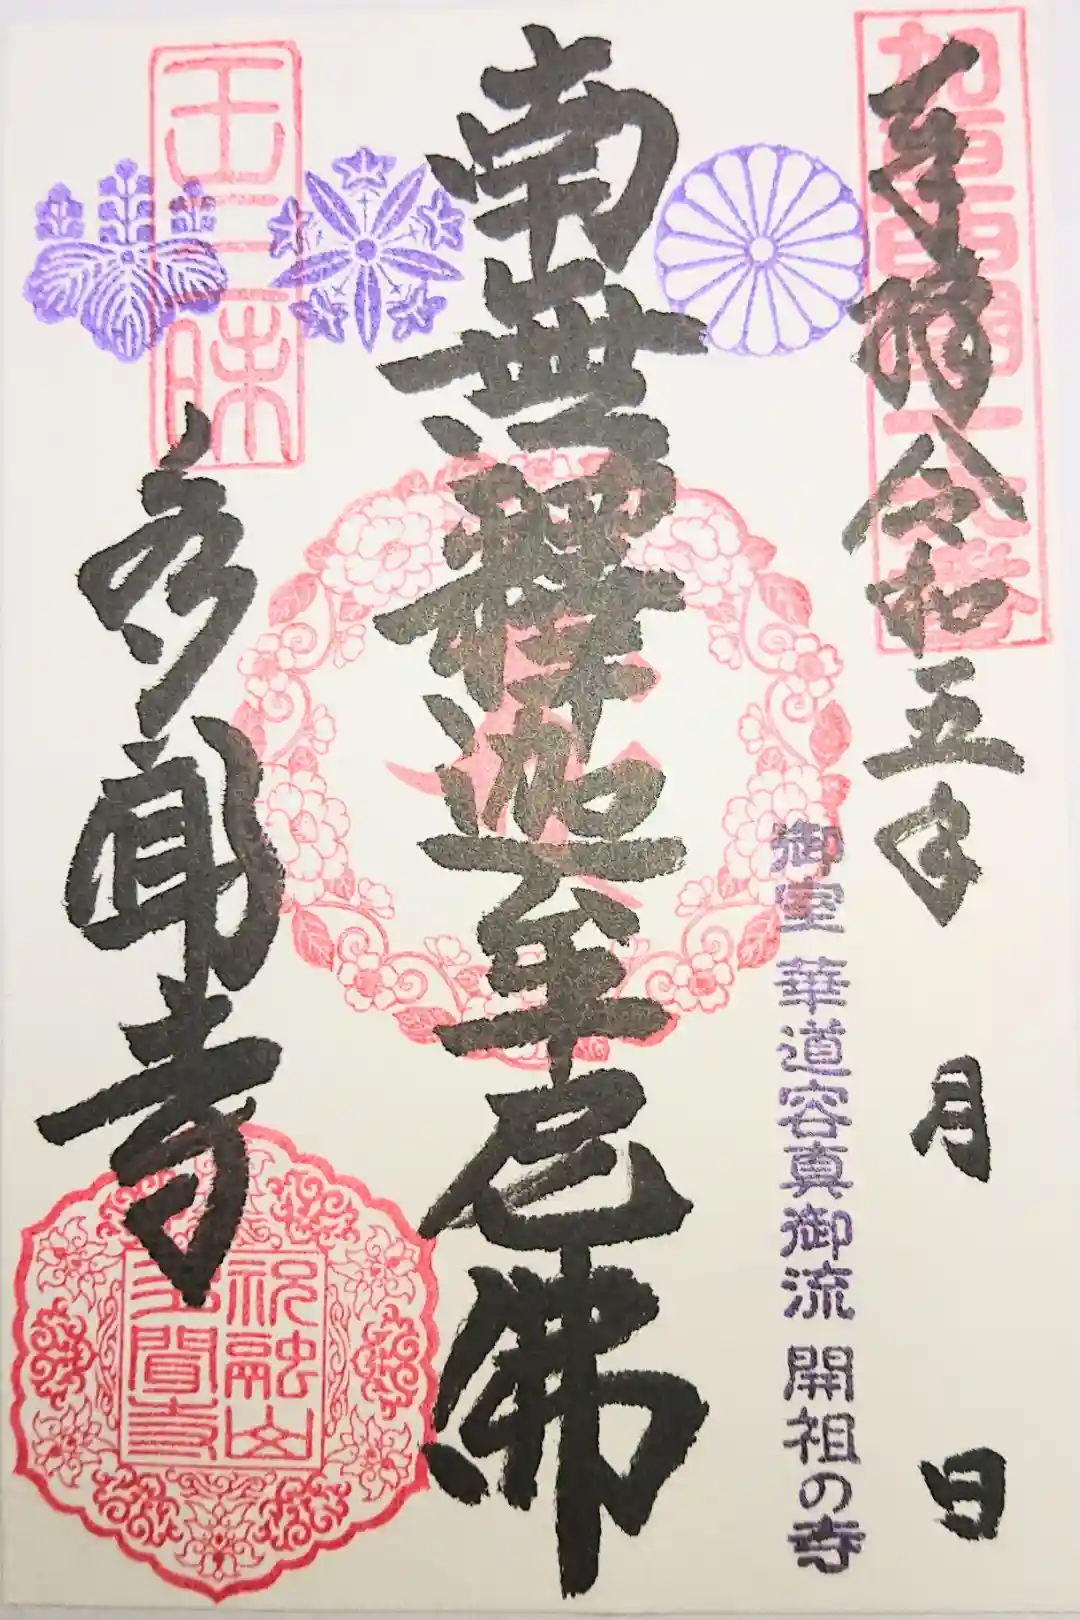 奉拝 令和五年 月 日
御室 華道容真御流 開祖の寺
南無釋迦牟尼佛
多聞寺
王三昧
祝融山
多聞寺